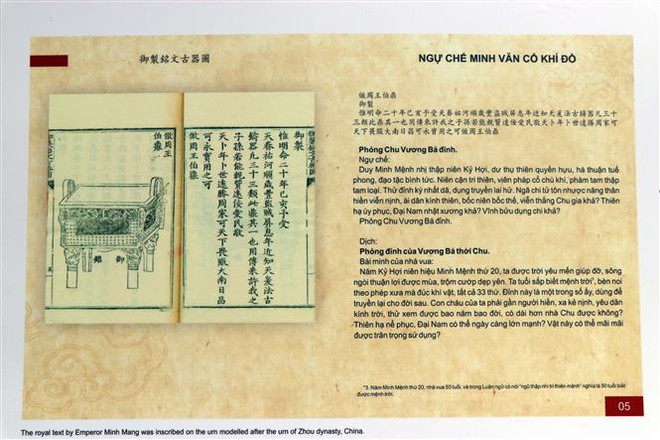 御製銘文古器圖
倣周王
伯鼎
御 銘
御製
惟明命二十年己亥予受
天眷祐河順歲豊盜戢屏息年近知天爰法古
鑄器凡三十三類此鼎其一也用傳來許我之
子孫若能親賢遠佞愛民敬
天卜年卜世遠勝周家可天下畏服大南日昌
可永寶用之可
倣周王伯鼎
NGỰ CHẾ MINH VĂN CỔ KHÍ ĐỒ
倣周王伯鼎
御製
惟明命二十年己亥予受天眷祐河順歲豊盜戢屏息年近知天爰法古鑄器凡三十
三類此鼎其一也用傳來許我之子孫若能親賢遠佞愛民敬天卜年卜世遠勝周家可
天下畏服大南日昌可永寶用之可倣周王伯鼎
Phỏng Chu Vương Bá đỉnh.
Ngự chế:
Duy Minh Mệnh nhị thập niên Kỷ Hợi, dư thụ thiên quyến hựu, hà thuận tuế
phong, đạo tặc bình tức. Niên cận tri thiên, viên pháp cổ chú khí, phàm tam thập
tam loại. Thử đỉnh kỳ nhất dã, dụng truyền lai hử. Ngã chi tử tôn nhược năng thân
hiền viễn nịnh, ái dân kính thiên, bốc niên bốc thế, viễn thắng Chu gia khả? Thiên
hạ úy phục, Đại Nam nhật xương khả? Vĩnh bửu dụng chi khả?
Phỏng Chu Vương Bá đỉnh.
Dịch:
Phỏng đỉnh của Vương Bá thời Chu.
Bài minh của nhà vua:
Năm Kỷ Hợi niên hiệu Minh Mệnh thứ 20, ta được trời yêu mến giúp đỡ, sông
ngòi thuận lợi được mùa, trộm cướp dẹp yên. Ta tuổi sắp biết mệnh trời³, bèn noi
theo phép xưa mà đúc khí vật, tất cả 33 thứ. Đỉnh này là một trong số ấy, dùng để
truyền lại cho đời sau. Con cháu của ta phải gần người hiền, xa kẻ nịnh, yêu dân
kính trời, thử xem được bao năm bao đời, có dài hơn nhà Chu được không?
Thiên hạ nể phục, Đại Nam có thể ngày càng lớn mạnh? Vật này có thể mãi mãi
được trân trọng sử dụng?
*3. Năm Minh Mệnh thứ 20, nhà vua 50 tuổi, và trong Luận ngữ có nói "ngũ thập nhi tri thiên mệnh" nghĩa là 50 tuổi biết
được mệnh trời.
05
The royal text by Emperor Minh Mang was inscribed on the urn modelled after the urn of Zhou dynasty, China.